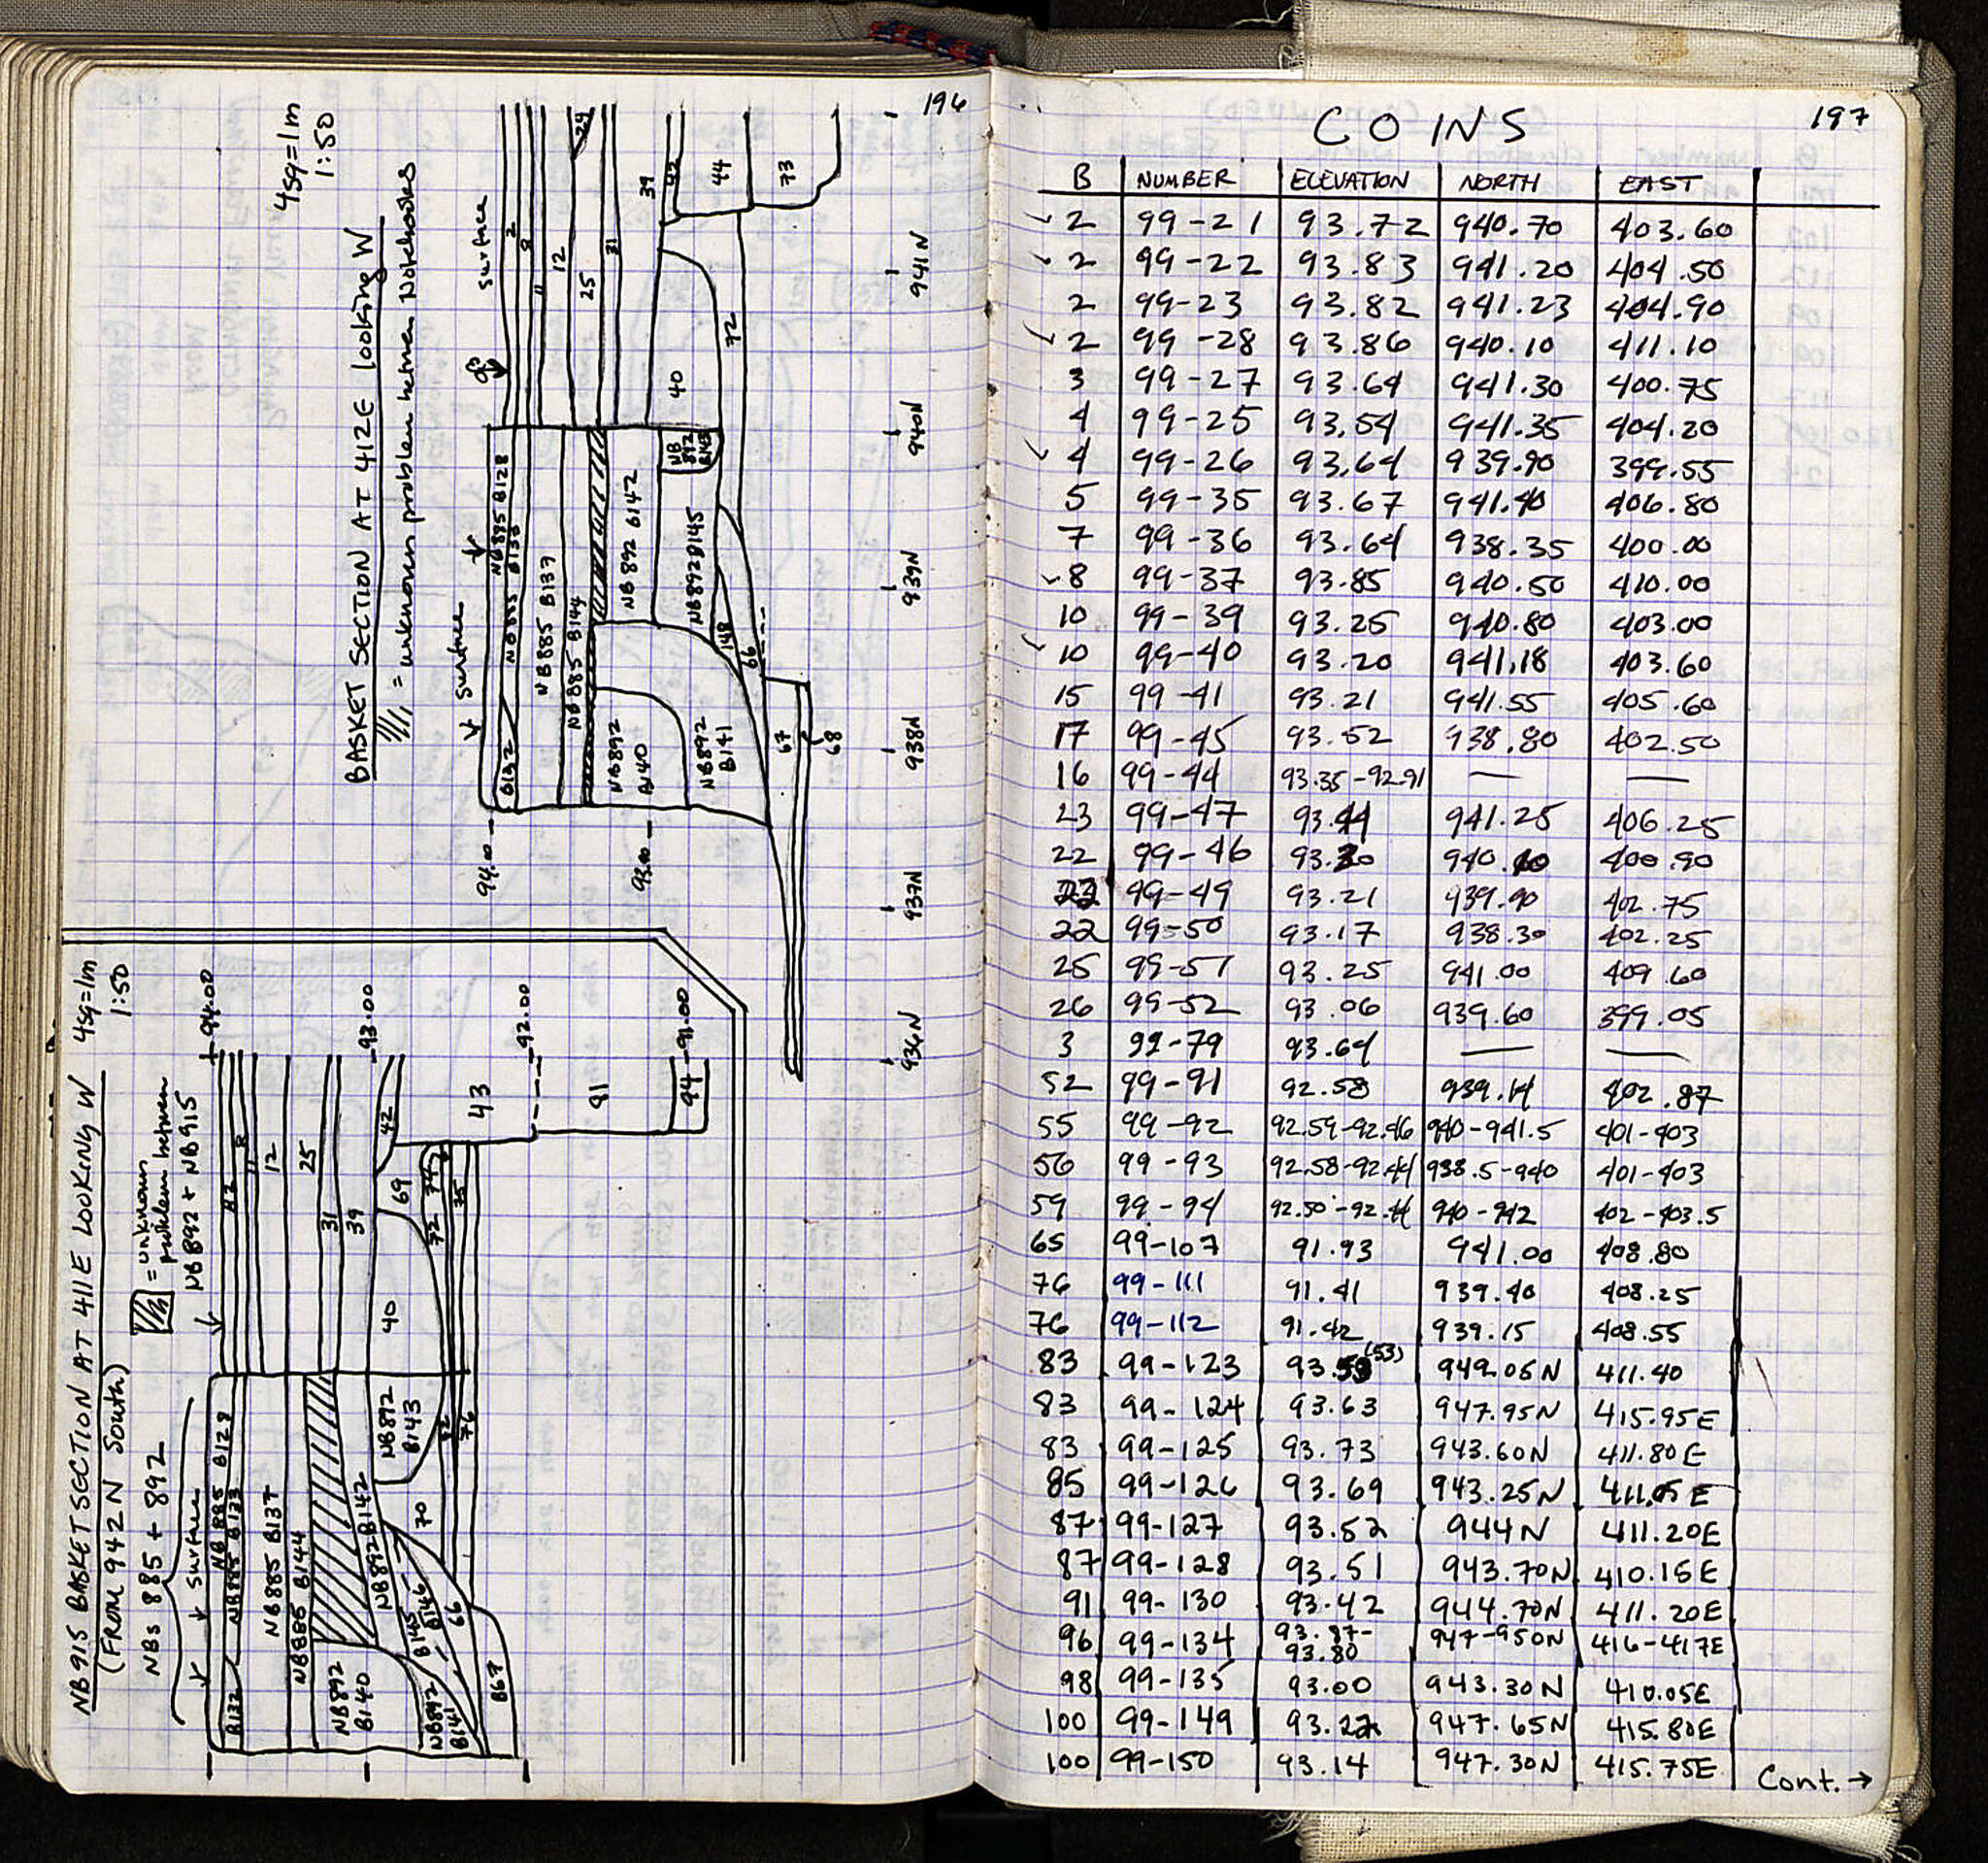 196
BASKET SECTION AT 412E looking W
4sq=1m
1:50
= unknown problem between Notebooks
surface
surface
2
8
11
12
25
24
31
39
42
44
73
40
72
NB885 B128
NB885 B133
B132
NB885 B137
NB885 B144
NB892 B142
NB892 B145
NB892 B140
NB892 B141
148
66
67
68
94.00
93.00
941N
940N
939N
938N
937N
936N
NB915 BASKET SECTION AT 411E LOOKING W
4sq=1m
1:50
(FROM 942 N South)
= unknown
problem between
NB892 + NB915
NBs 885 + 892
surface
94.00
93.00
92.00
91.00
11
12
25
31
39
42
43
91
94
69
72
40
76
70
NB885 B128
NB885 B133
B132
NB885 B137
NB885 B144
NB892 B142
NB892 B143
NB892 B140
B145
B146
NB892 B141
66
B67
197
COINS
B NUMBER ELEVATION NORTH EAST
2 99-21 93.72 940.70 403.60
2 99-22 93.83 941.20 404.50
2 99-23 93.82 941.23 404.90
2 99-28 93.86 940.10 411.10
3 99-27 93.64 941.30 400.75
4 99-25 93.54 941.35 404.20
4 99-26 93.64 939.90 399.55
5 99-35 93.67 941.40 406.80
7 99-36 93.64 938.35 400.00
8 99-37 93.85 940.50 410.00
10 99-39 93.25 940.80 403.00
10 99-40 93.20 941.18 403.60
15 99-41 93.21 941.55 405.60
17 99-45 93.52 938.80 402.50
16 99-44 93.35-92.91 — —
23 99-47 93.44 941.25 406.25
22 99-46 93.30 940.10 400.90
22 99-49 93.21 939.90 402.75
22 99-50 93.17 938.30 402.25
25 99-51 93.25 941.00 409.60
26 99-52 93.06 939.60 399.05
3 99-79 93.64 — —
52 99-91 92.58 939.14 402.87
55 99-92 92.59-92.46 940-941.5 401-403
56 99-93 92.58-92.44 938.5-940 401-403
59 99-94 92.50-92.44 940-942 402-403.5
65 99-107 91.93 941.00 408.80
76 99-111 91.41 939.40 408.25
76 99-112 91.42 939.15 408.55
83 99-123 93.53 (53) 949.05N 411.40
83 99-124 93.63 947.95N 415.95E
83 99-125 93.73 943.60N 411.80E
85 99-126 93.69 943.25N 411.05E
87 99-127 93.52 944N 411.20E
87 99-128 93.51 943.70N 410.15E
91 99-130 93.42 944.70N 411.20E
96 99-134 93.87-93.80 947-950N 416-417E
98 99-135 93.00 943.30N 410.05E
100 99-149 93.22 947.65N 415.80E
100 99-150 93.14 947.30N 415.75E
Cont. →